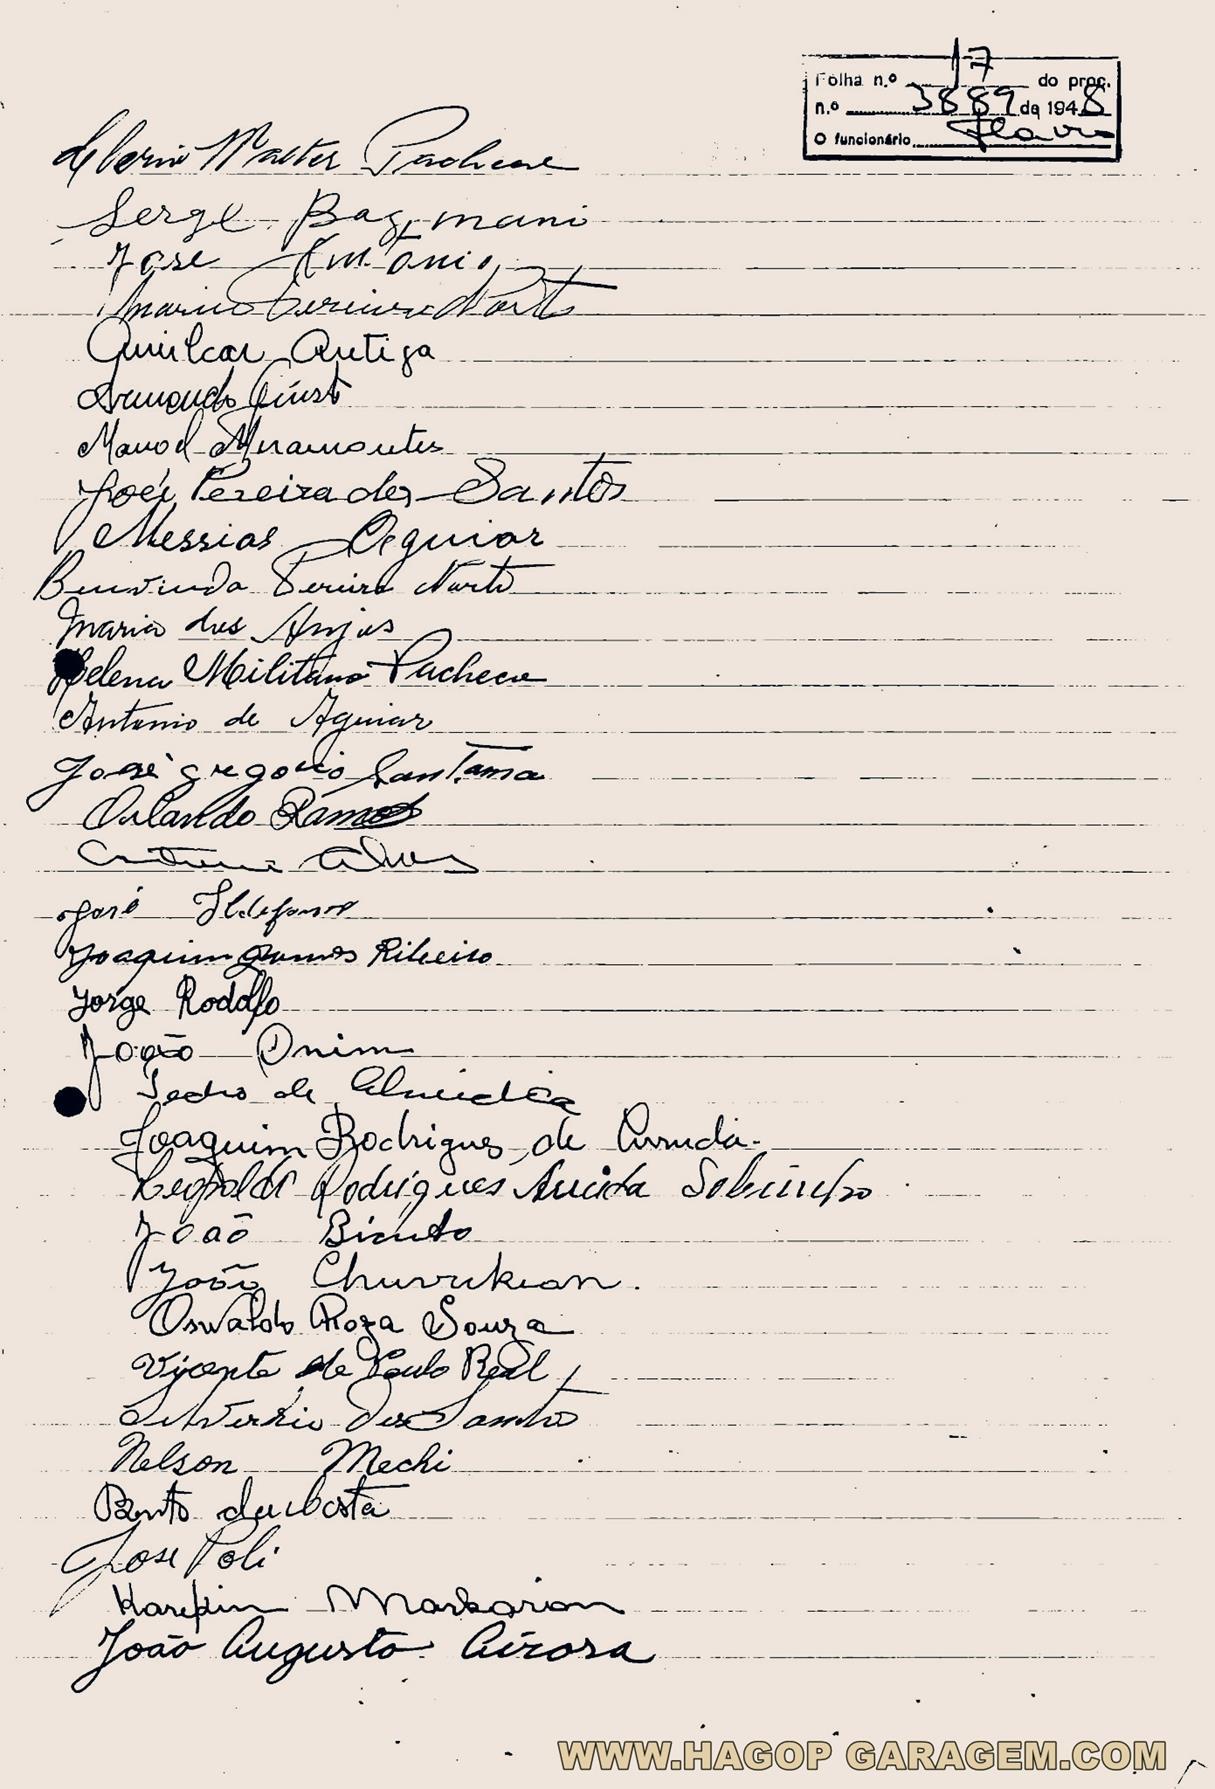 Folha n.º 17 do proc.
n.º 3889 de 1948
O funcionário Flavio
Walter Pacheco
Serge
José Antonio
Mario Pereira
Amilcar Artiga
Armando
Manoel Miramontes
José Pereira dos Santos
Messias Aguiar
Benvinda Pereira
Maria dos Anjos
Helena Militano Pacheco
Antonio de Aguiar
José gregorio Santana
Orlando Ramos
Alves
José Ildefonso
Joaquim Gomes Ribeiro
Jorge Rodolfo
João Onim
Pedro de Almeida
Joaquim Rodrigues de Arruda
Leopoldo Rodrigues Arruda Sobrinho
João Bicudo
João Churukian.
Oswaldo Roza Souza
Vicente de Paulo Real
Silverio dos Santos
Nelson Mechi
Bento da Costa
Jose Poli
Karekin Markarian
João Augusto Airosa
WWW.HAGOP GARAGEM.COM